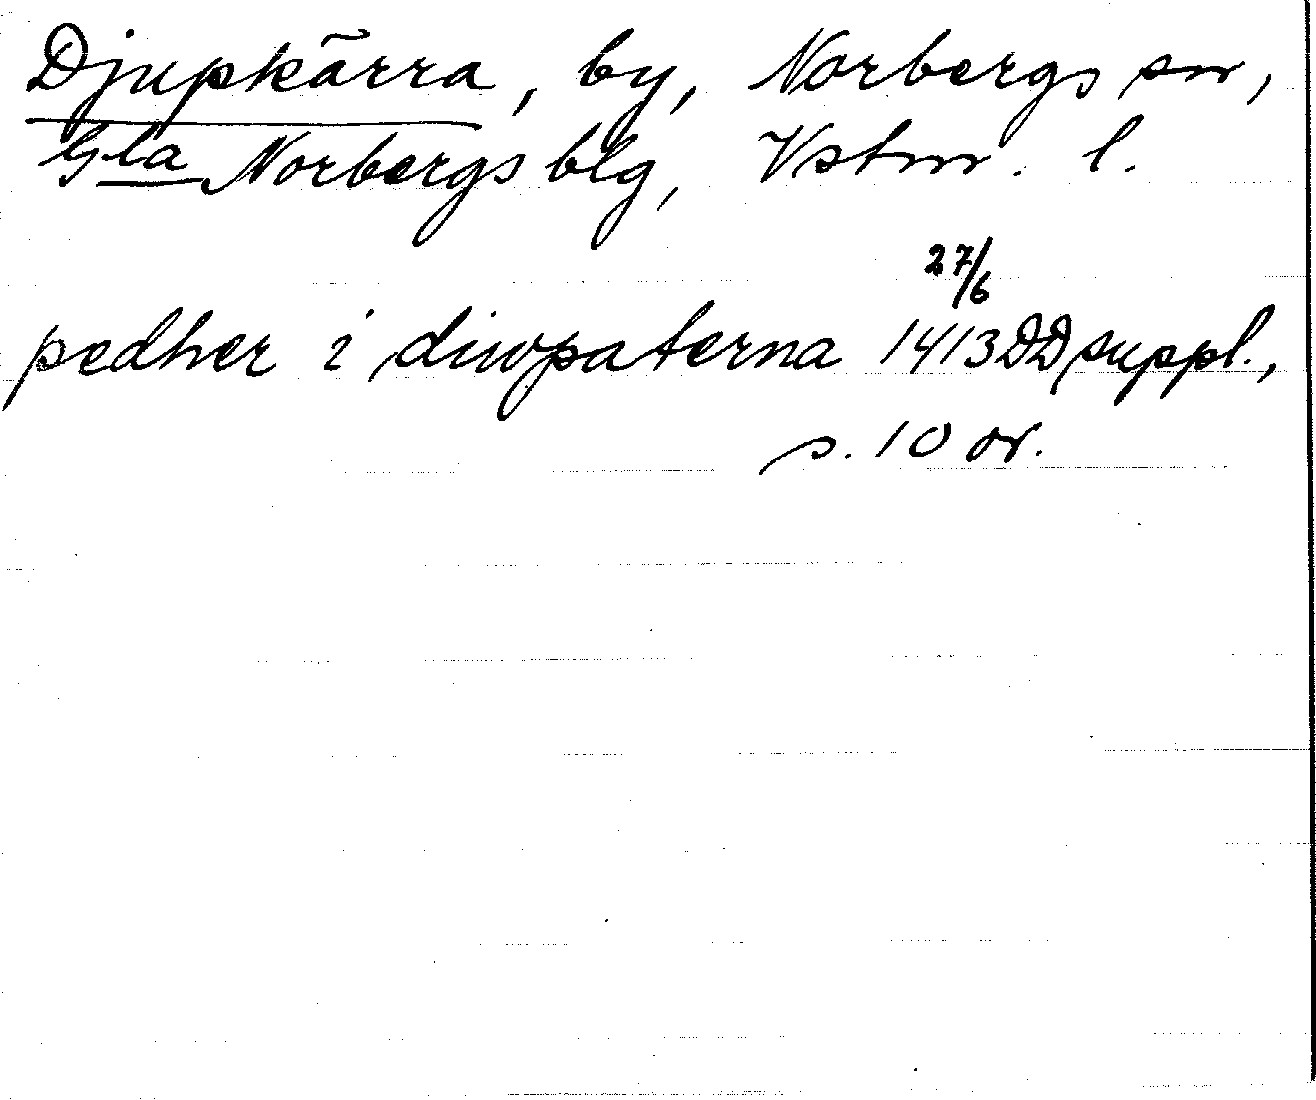 Djupkärra, by, Norbergs sn,
Gla Norbergs blg, Vstm. l.
27/6
pedher i diwpaterna 1413 DD suppl.,
s. 10 or.